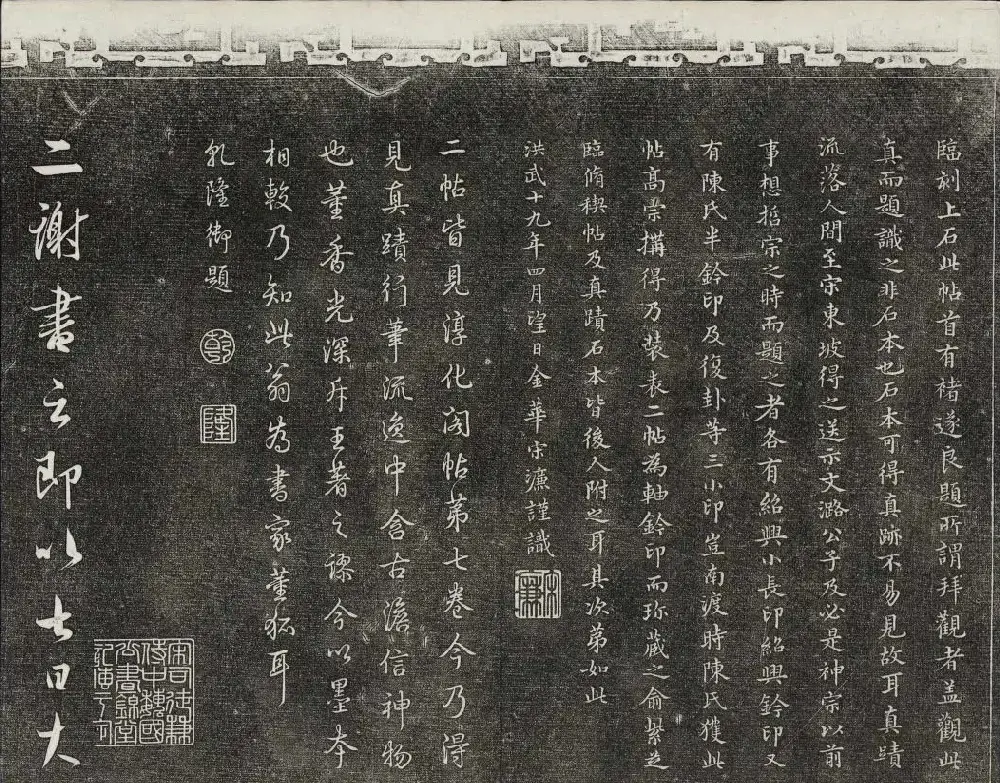 臨刻上石此帖首有褚遂良題所謂拜觀者盖觀此
真而題識之非石本也石本可得真跡不易見故耳真蹟
流落人間至宗東坡得之送示文潞公子及必是神宗以前
事想哲宗之時而題之者各有紹興小長印紹興鈐印又
有陳氏半鈐印及復卦等三小印豈南渡時陳氏獲此
帖高宗搆得乃裝表二帖為軸鈐印而珎藏之俞紫芝
臨脩稧帖及真蹟石本皆後人附之耳其次第如此
洪武十九年四月望日金華宋濂謹識
二帖皆見淳化閣帖苐七卷今乃得
見真蹟行筆流逸中含古澹信神物
也董香光深斥王著之謬今以墨本
相較乃知此翁為書家董狐耳
乹隆御題
乾
隆
二謝書云即以七日大